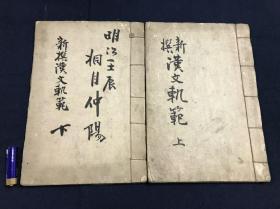 新撰漢文軌範
上
明治壬辰
桐月仲陽
新撰漢文軌範
下